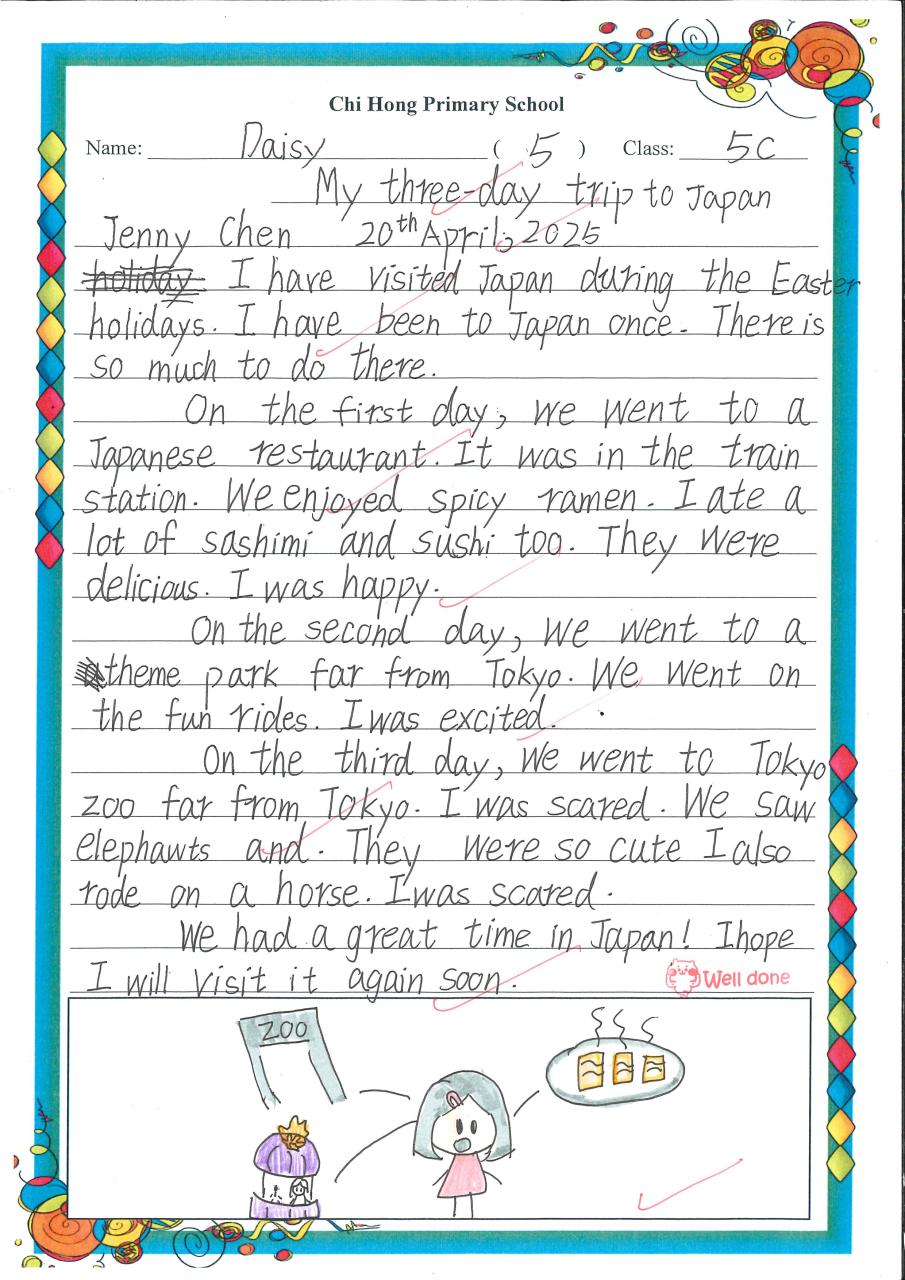 Chi Hong Primary School
Name: Daisy ( 5 ) Class: 5C
My three-day trip to Japan
Jenny Chen 20th April, 2025
holiday I have visited Japan during the Easter
holidays. I have been to Japan once. There is
so much to do there.
On the first day, we went to a
Japanese restaurant. It was in the train
station. We enjoyed spicy ramen. I ate a
lot of sashimi and sushi too. They were
delicious. I was happy.
On the second day, we went to a
theme park far from Tokyo. We went on
the fun rides. I was excited.
On the third day, we went to Tokyo
zoo far from Tokyo. I was scared. We saw
elephawts and. They were so cute I also
rode on a horse. I was scared.
We had a great time in Japan! I hope
I will visit it again soon.
Well done
ZOO